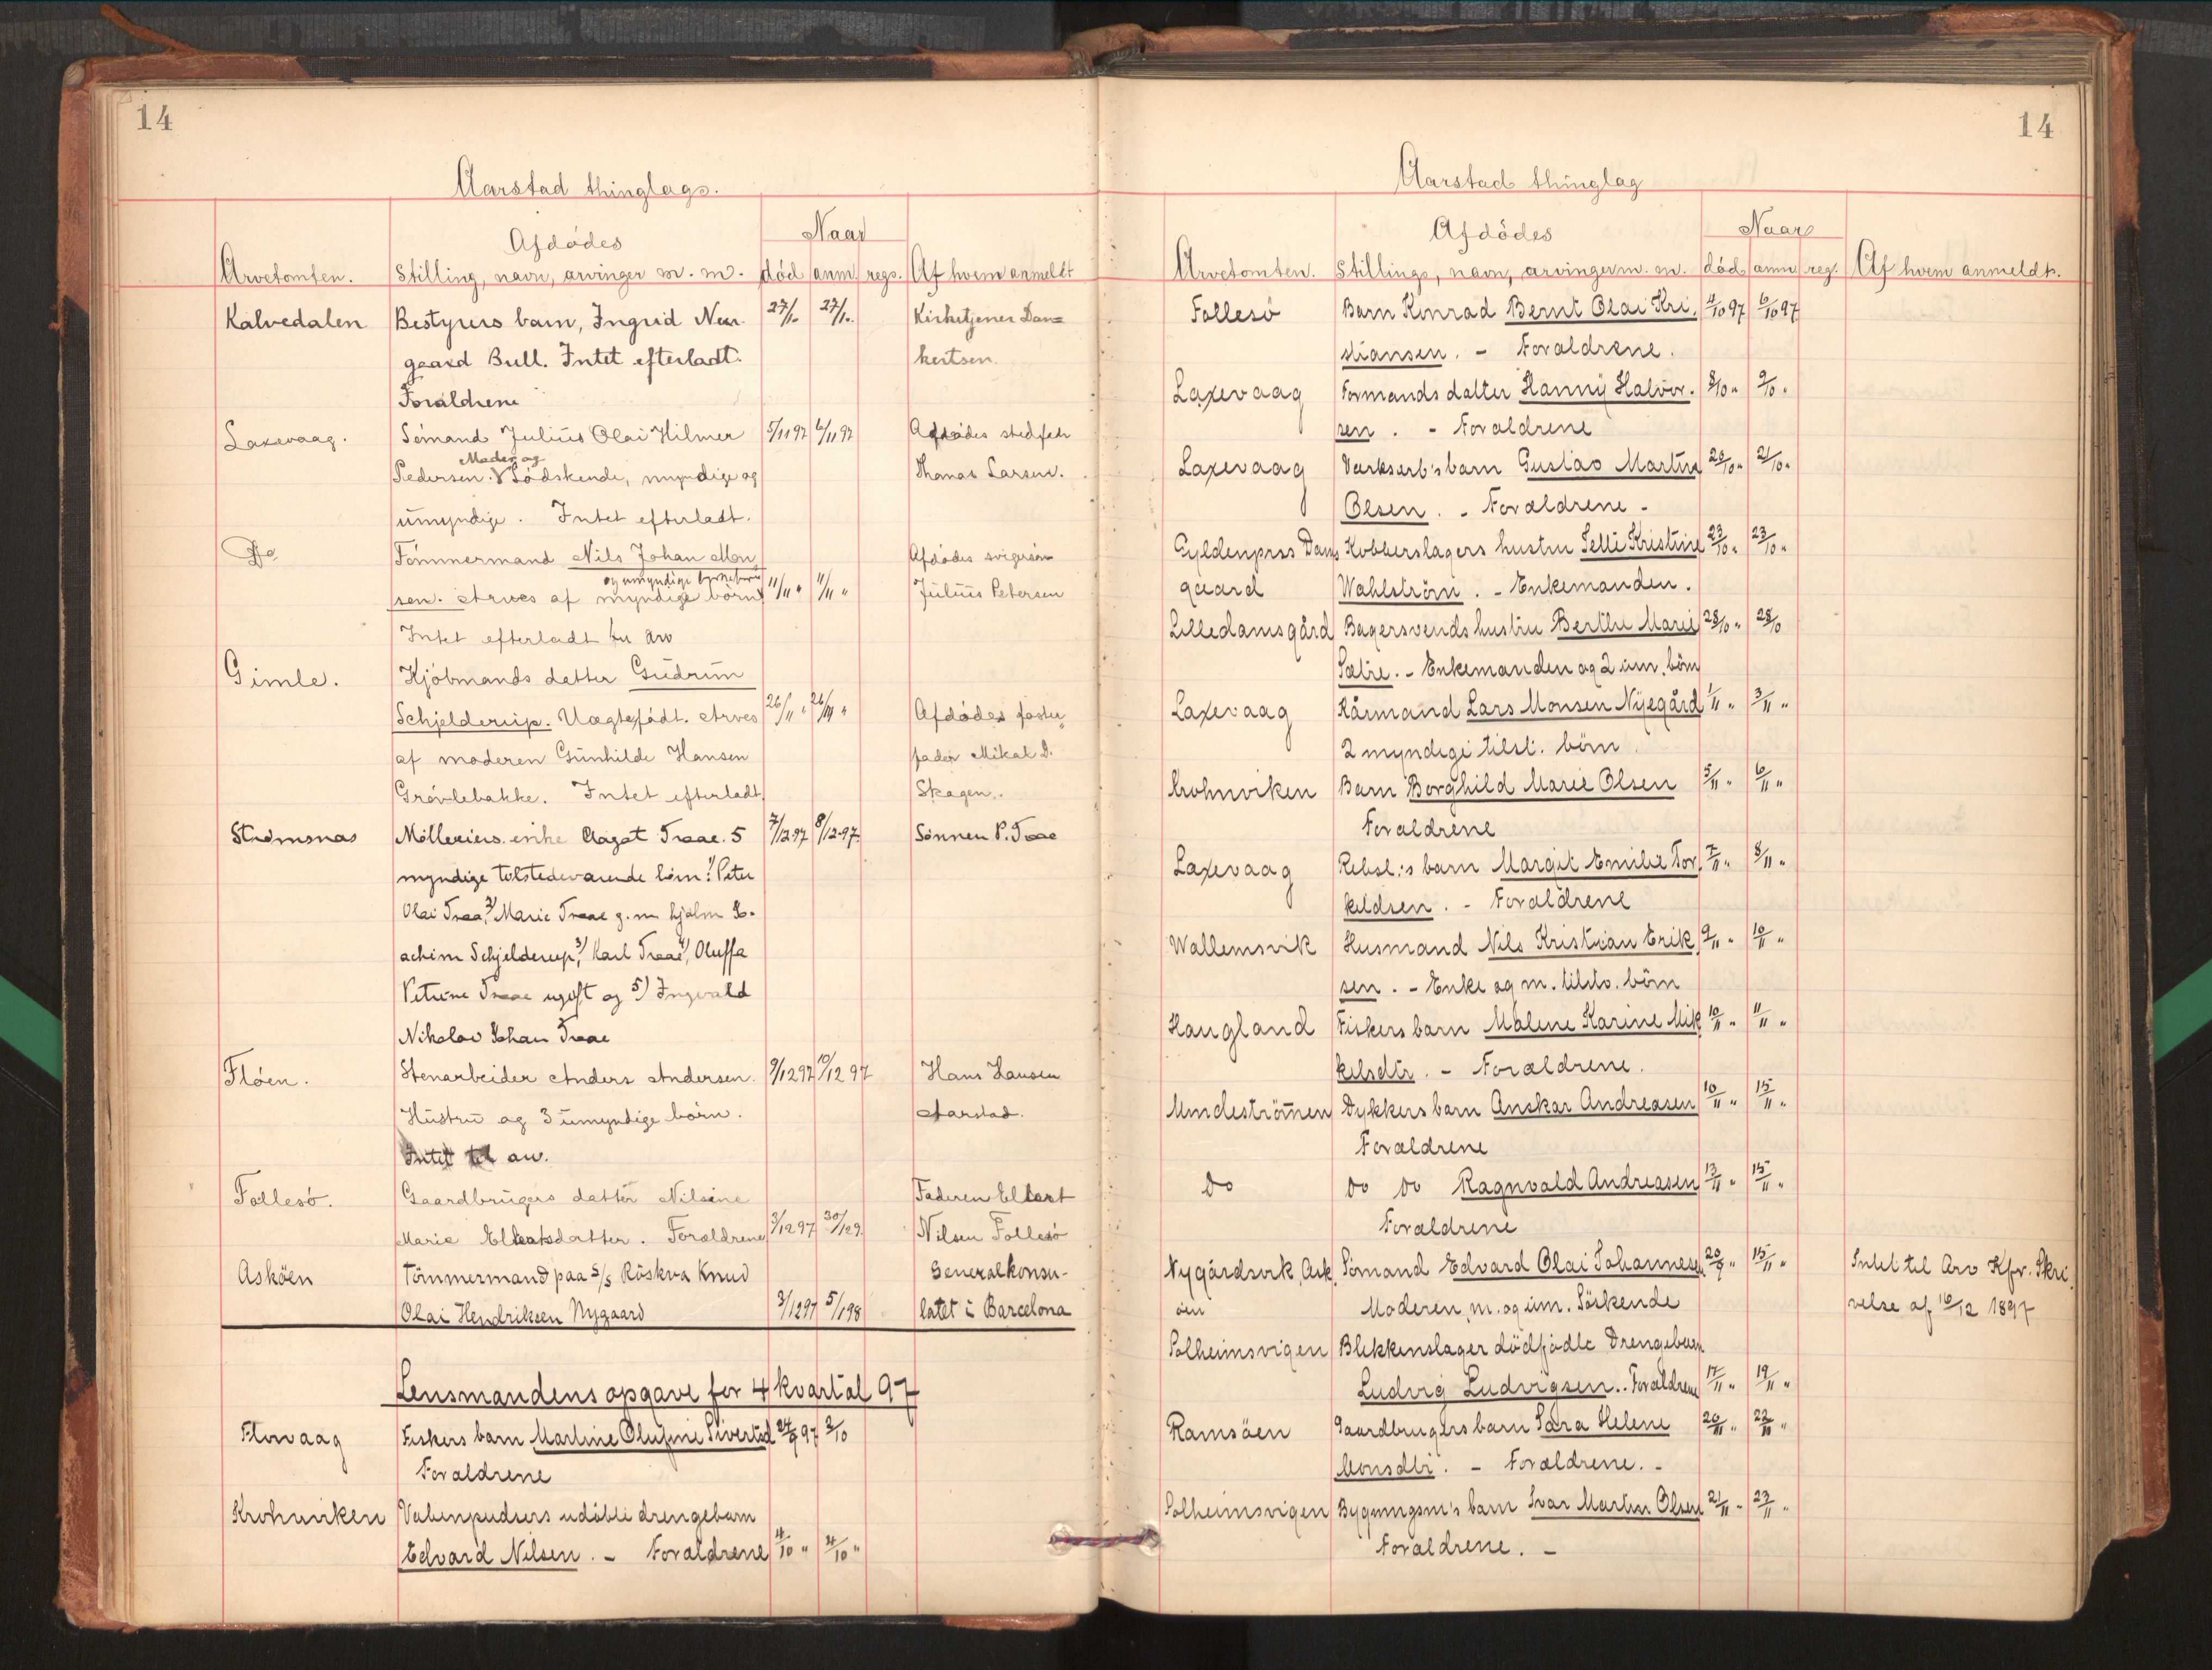 14
Aarstad thinglags.
Afdödes
Naar
Arvetomten. Stilling, navn, arvinger m. m. död anm. regs. Af hvem anmeldt
Kalvedalen Bestyrers barn, Ingrid Neer- 27/10 27/10. Kirketjener Dan=
gaard Bull. Intet efterladt. kertsen.
Forældrene
Laxevaag. Sömand Julius Olai Hilmer 5/11 97 6/11 97 Afdödes stedfeder
Moder og
Pedersen. Södskende, myndige og Thomas Larsen.
umyndige. Intet efterladt.
Do Tömmermand Nils Johan Mon Afdödes svigersön
og umyndige börnebörn
sen. Arves af myndige börn 11/11 " 11/11 " Julius Petersen
Intet efterladt til arv
Gimle. Kjöbmands datter Gudrun
Schjelderup. Uægtefödt. Arves 26/11 " 26/11 " Afdödes foster-
af moderen Gunhilde Hansen fader Mikal D.
Grövlebakke. Intet efterladt. Skagen.
Strömsnæs Mölleriers. enke Aagot Traae. 5 7/12 97 8/12 97. Sönnen P. Traae
myndige tilstedeværende börn: 1/ Peter
Olai Traae, 2/ Marie Traae g. m. hjalm Jo-
achim Schjelderup, 3/ Karl Traae 4/, Oluffa
Petrine Traae ugift og 5) Ingvald
Nikolai Johan Traae
Flöen. Stenarbeider Anders Andersen. 9/12 97 10/12 97 Hans Hansen
Hustru og 3 umyndige börn. Aarstad.
Intet til arv.
Follesö. Gaardbrugers datter Nilsine Faderen Ellert
Marie Ellertsdatter. Forældrene 3/12 97 30/12 9. Nilsen Follesö
Asköen Tömmermand paa S/S Röskva Knud Generalkonsu-
Olai Hendriksen Nygaard 3/12 97 5/1 98 latet i Barcelona
Lensmandens opgave for 4 kvartal 97
Florvaag Fiskers barn Martine Olufine Sivertsd 24/9 97 2/10
Forældrene
Krohnviken Vabenpudsers udöbte drengebarn
Edvard Nilsen. - Forældrene 4/10 " 4/10 "
14
Aarstad thinglag
Afdödes
Naar
Arvetomten. Stillings, navn, arvinger m. m. död anm reg. Af hvem anmeldt.
Follesö Barn Konrad Bernt Olai Kri. 4/10 97 6/10 97
stiansen. - Forældrene.
Laxevaag Formands datter Hanny Halvor. 8/10 " 9/10 "
sen. - Forældrene
Laxevaag Værksarb's barn Gustav Martin 20/10 " 21/10 "
Olsen. - Forældrene -
Gyldenpris Dams Kobberslagers hustru Selli Kristine 23/10 " 23/10 "
gaard Wahlström. - Enkemanden.
Lilledamsgård Bagersvends hustru Berthe Marie 28/10 " 28/10
Sætre. - Enkemanden og 2 um. börn
Laxevaag Kårmand Lars Monsen Nyegård 1/11 " 3/11 "
2 myndige tilst. börn.
Krohnviken Barn Borghild Marie Olsen 5/11 " 6/11 "
Forældrene
Laxevaag Rebsl.'s barn Margit Emilie Tor. 7/11 " 8/11 "
kildsen. - Forældrene
Wallemsvik Husmand Nils Kristian Erik. 9/11 " 10/11 "
sen. - Enke og m. tilstv. börn
Haugland Fiskers barn Malene Karine Mik 10/11 " 11/11 "
kelsdtr. - Forældrene.
Mindeströmen Dykkers barn Anskar Andreasen 10/11 " 15/11 "
Forældrene
Do Do Do Ragnvald Andreasen 13/11 " 15/11 "
Forældrene
Nygårdsvik, Ask. Sömand Edvard Olai Johannesen. 20/9 " 15/11 " Intet til Arv Kfr. Skri.
öen Moderen, m. og um. Söskende velse af 16/12 1897
Solheimsvigen Blikkenslager dödfödte Drengebarn
Ludvig Ludvigsen.. Forældrene 17/11 " 19/11 "
Ramsöen Gaardbrugers barn Sara Helene 20/11 " 22/11 "
Monsdtr. - Forældrene. -
Solheimsvigen Bygningsm's barn Ivar Martin Olsen 21/11 " 23/11 "
Forældrene. -